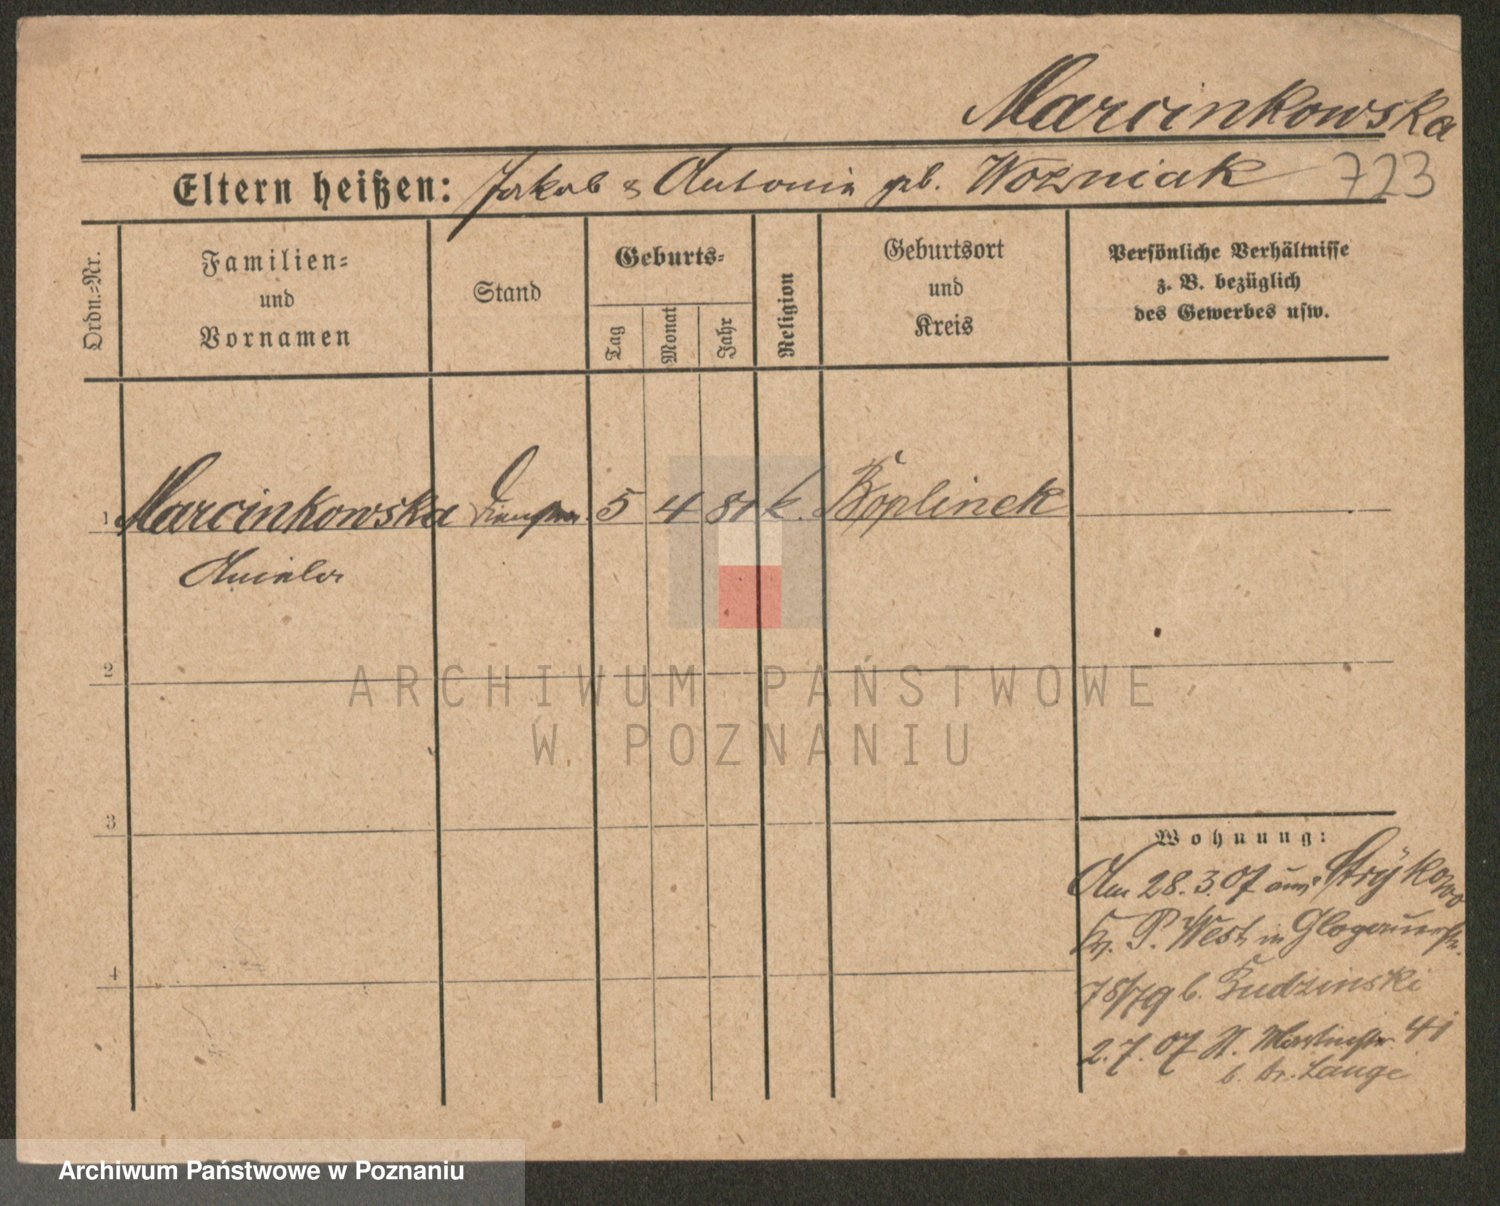 Marcinkowska
Eltern heißen: Jakob & Antonie geb. Wozniak 723
Ordn.-Nr.
Familien-
und
Vornamen
Stand
Geburts-
Tag
Monat
Jahr
Religion
Geburtsort
und
Kreis
Persönliche Verhältnisse
z. B. bezüglich
des Gewerbes usw.
1 Marcinkowska 5 4 81 k. Koplinek
Aniela
2
3
4
Wohnung:
Am 28.3.07 aus Strykowo
Kr. P. West in Glogauerstr.
78/79 b. Kudzinski
2.7.07 St. Martinstr. 41
b. Dr. Lange
ARCHIWUM PAŃSTWOWE
W POZNANIU
Archiwum Państwowe w Poznaniu